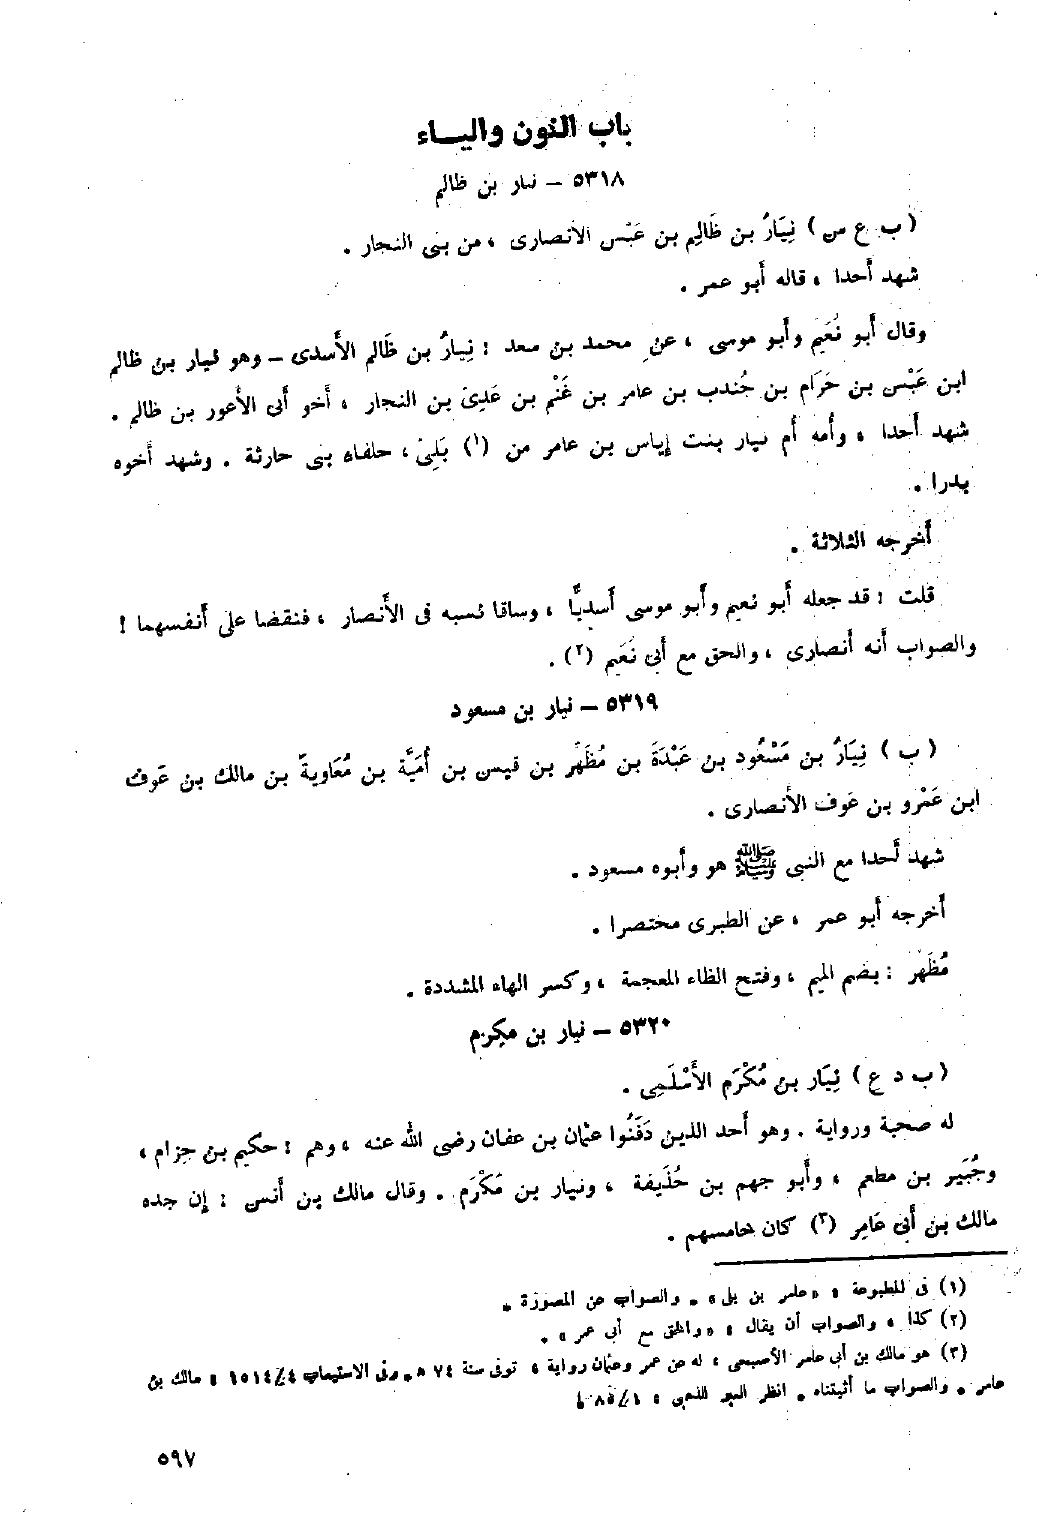 باب النون والياء
٥٣١٨ – نيار بن ظالم
( ب ع س ) نِيَارُ بن ظَالِم بن عَبْس الأنصارى ، من بنى النجار .
شهد أُحدا ، قاله أبو عمر .
وقال أبو نُعَيم وأبو موسى ، عن محمد بن سعد : نِيارُ بن ظَالم الأَسدى – وهو نيار بن ظالم
ابن عَبْس بن حَرَام بن جُندب بن عامر بن غَنْم بن عَدِىّ بن النجار ، أخو أبى الأعور بن ظالم .
شهد أُحدا ، وأمه أم نيار بنت إياس بن عامر من (١) بَلِىّ ، حلفاء بنى حارثة . وشهد أخوه
بدرا .
أخرجه الثلاثة .
قلت : قد جعله أبو نعيم وأبو موسى أسديًّا ، وساقا نسبه فى الأنصار ، فنقضا على أنفسهما !
والصواب أنه أنصارى ، والحق مع أبى نُعَيم (٢) .
٥٣١٩ – نيار بن مسعود
( ب ) نِيَارُ بن مَسْعُود بن عَبْدَةَ بن مُظَهِّر بن قيس بن أُمَيَّة بن مُعَاوية بن مالك بن عَوف
ابن عَمْرو بن عَوف الأنصارى .
شهد أُحدا مع النبى ﷺ هو وأبوه مسعود .
أخرجه أبو عمر ، عن الطبرى مختصرا .
مُظَهِّر : بضم الميم ، وفتح الظاء المعجمة ، وكسر الهاء المشددة .
٥٣٢٠ – نيار بن مكرم
( ب د ع ) نِيَار بن مُكْرَم الأَسْلَمِى .
له صحبة ورواية . وهو أحد الذين دَفَنُوا عثمان بن عفان رضى الله عنه ، وهم : حكيم بن حِزام ،
وجُبَير بن مطعم ، وأبو جهم بن حُذَيفة ، ونيار بن مُكْرَم . وقال مالك بن أنس : إن جده
مالك بن أبى عَامِر (٣) كان خامسهم .
(١) فى المطبوعة : «عامر بن بلى» . والصواب عن المصورة .
(٢) كذا ، والصواب أن يقال : «والحق مع أبى عمر» .
(٣) هو مالك بن أبى عامر الأصبحى ، له عن عمر وعثمان رواية ، توفى سنة ٧٤ ه . وفى الاستيعاب ١٥١٤/٤ : مالك بن
عامر . والصواب ما أثبتناه . انظر العبر للذهبى : ٨٥/١
٥٩٧